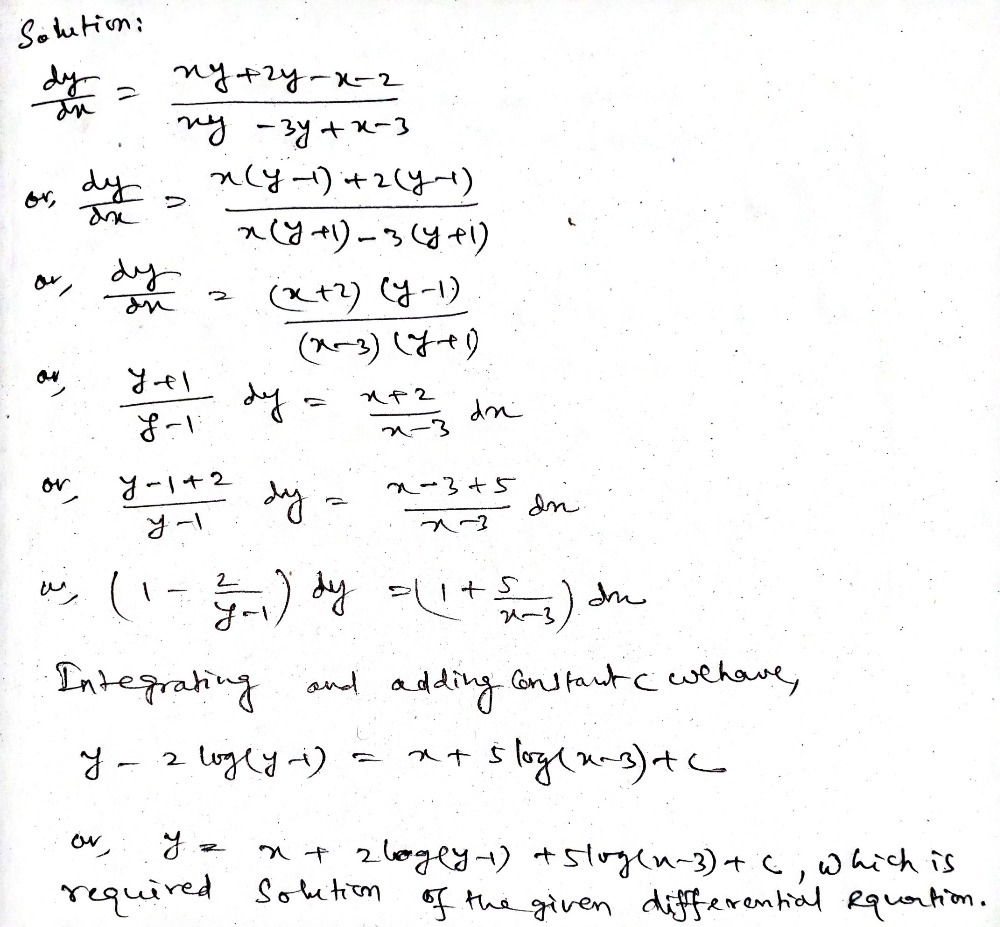 Solution:
dy/dx = (xy+2y-x-2)/(xy-3y+x-3)
or, dy/dx = (x(y-1)+2(y-1))/(x(y+1)-3(y+1))
or, dy/dx = ((x+2)(y-1))/((x-3)(y+1))
or, (y+1)/(y-1) dy = (x+2)/(x-3) dx
or, (y-1+2)/(y-1) dy = (x-3+5)/(x-3) dx
or, (1 - 2/(y-1)) dy = (1 + 5/(x-3)) dx
Integrating and adding Constant c we have,
y - 2 log(y-1) = x + 5 log(x-3) + c
or, y = x + 2 log(y-1) + 5 log(x-3) + c, which is
required Solution of the given differential equation.